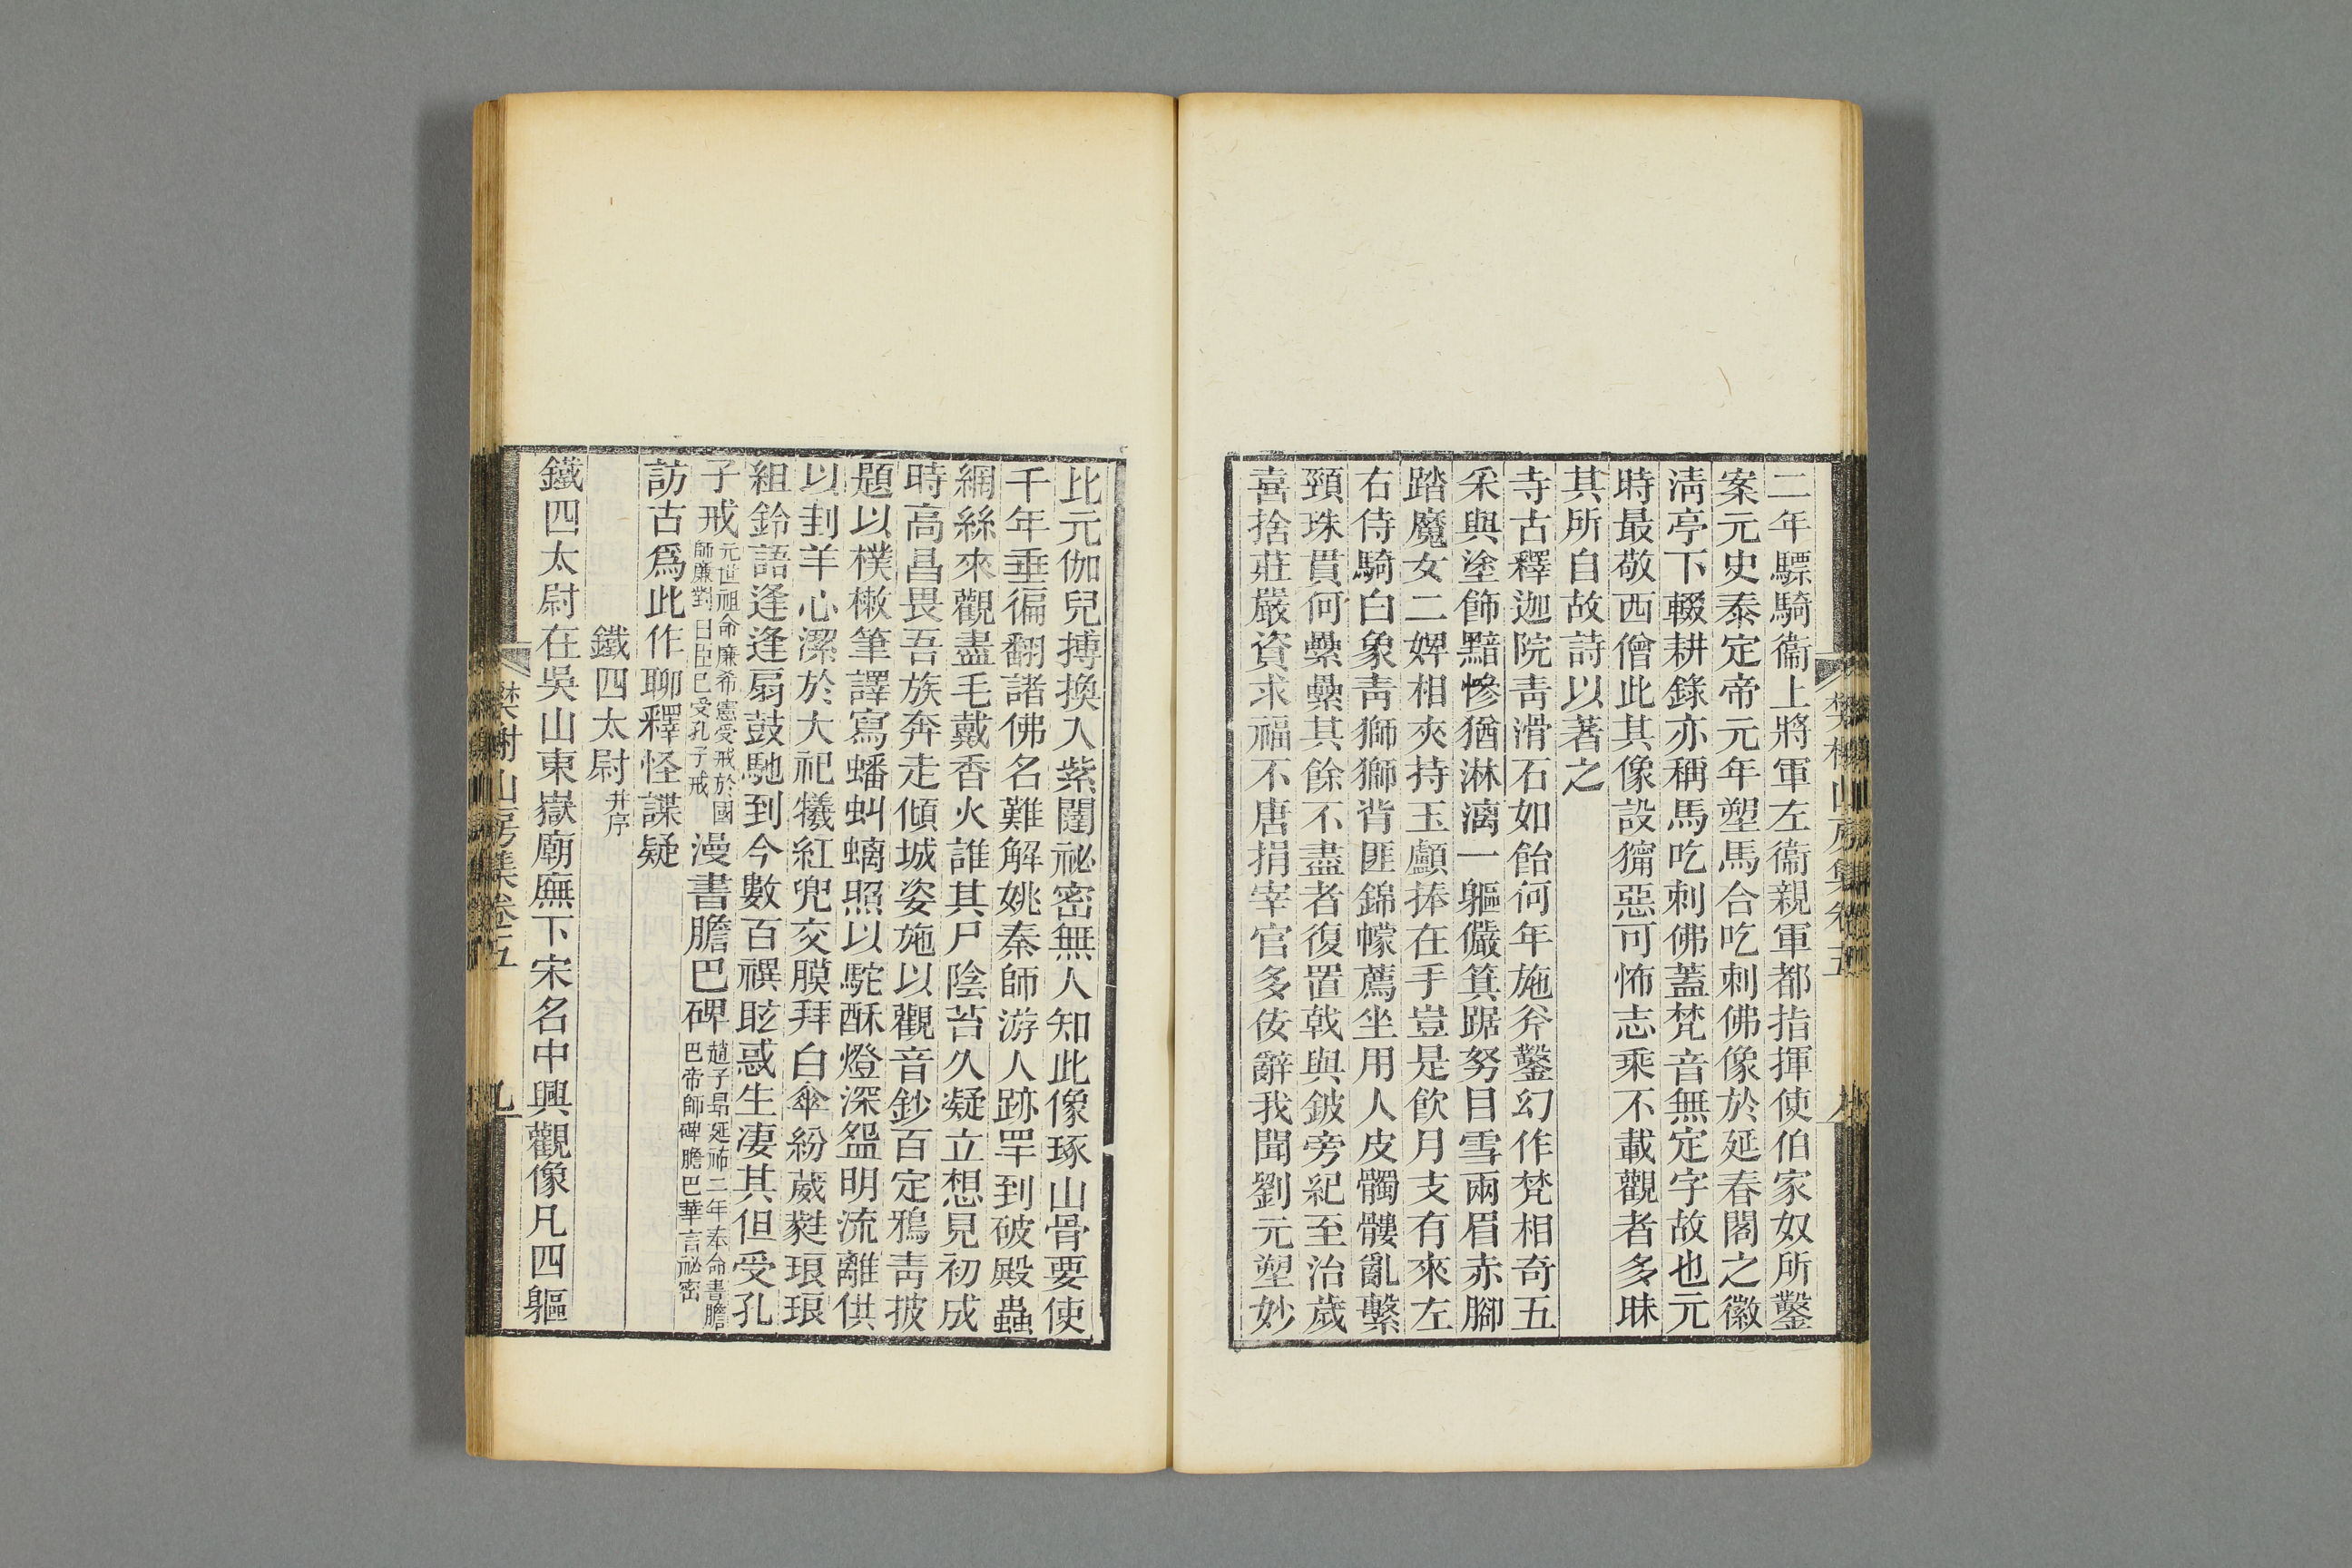 二年驃騎衞上將軍左衞親軍都指揮使伯家奴所鑿
案元史泰定帝元年塑馬合吃刺佛像於延春閣之徽
淸亭下輟耕錄亦稱馬吃刺佛蓋梵音無定字故也元
時最敬西僧此其像設獰惡可怖志乘不載觀者多昧
其所自故詩以著之
寺古釋迦院靑滑石如飴何年施斧鑿幻作梵相奇五
采與塗飾黯慘猶淋漓一軀儼箕踞努目雪兩眉赤腳
踏魔女二婢相夾持玉顱捧在手豈是飮月支有來左
右侍騎白象靑獅獅背匪錦幪薦坐用人皮髑髏亂繫
頸珠貫何纍纍其餘不盡者復置戟與鈹旁紀至治歲
喜捨莊嚴資求福不唐捐宰官多佞辭我聞劉元塑妙
樊榭山房集卷五
比元伽兒摶換入紫闥祕密無人知此像琢山骨要使
千年垂徧翻諸佛名難解姚秦師游人跡罕到破殿蟲
網絲來觀盡毛戴香火誰其尸陰苔久凝立想見初成
時高昌畏吾族奔走傾城姿施以觀音鈔百定鴉靑披
題以樸樕筆譯寫蟠虯螭照以駝酥燈深盌明流離供
以刲羊心潔於大祀犧紅兜交膜拜白傘紛葳蕤琅琅
組鈴語逢逢扇鼓馳到今數百禩眩惑生淒其但受孔
子戒元世祖命廉希憲受戒於國師廉對曰臣已受孔子戒漫書膽巴碑趙子昻延祐二年奉命書膽巴帝師碑膽巴華言祕密
訪古爲此作聊釋怪諜疑
鐵四太尉幷序
鐵四太尉在吳山東嶽廟廡下宋名中興觀像凡四軀
樊榭山房集卷五
九